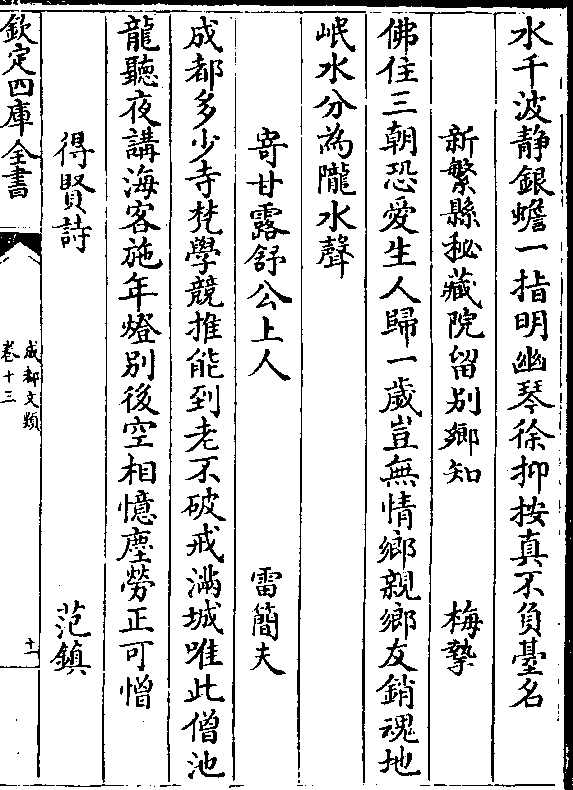 水千波靜銀蟾一指明幽琴徐抑按真不負臺名
新繁縣秘藏院留别鄉知 梅摯
佛住三朝恐愛生人歸一歲豈無情鄉親鄉友銷魂地
岷水分為隴水聲
寄甘露舒公上人 雷簡夫
成都多少寺梵學競推能到老不破戒滿城唯此僧池
龍聽夜講海客施年燈別後空相憶塵勞正可憎
得賢詩 范鎮
欽定四庫全書
成都文類
卷十三
十一